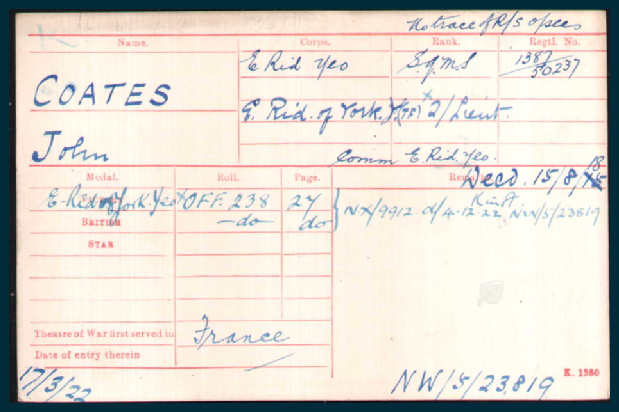 No trace of R/S opees
Name. Corps. Rank. Regtl. No.
E Rid Yeo S.Q.M.S 1387
50237
COATES
E. Rid. of York. Y. (TF) x 2/Lieut.
John
Comm E. Rid. Yeo.
Medal. Roll. Page. Remarks.
Decd. 15/8/18
E. Rid of York. Yeo x OFF. 238 27
BRITISH —do— do } NX/9912 d/4.12.22 NW/5/23819
STAR
Theatre of War first served in France
Date of entry therein
K. 1380
17/3/22 NW/5/23,819